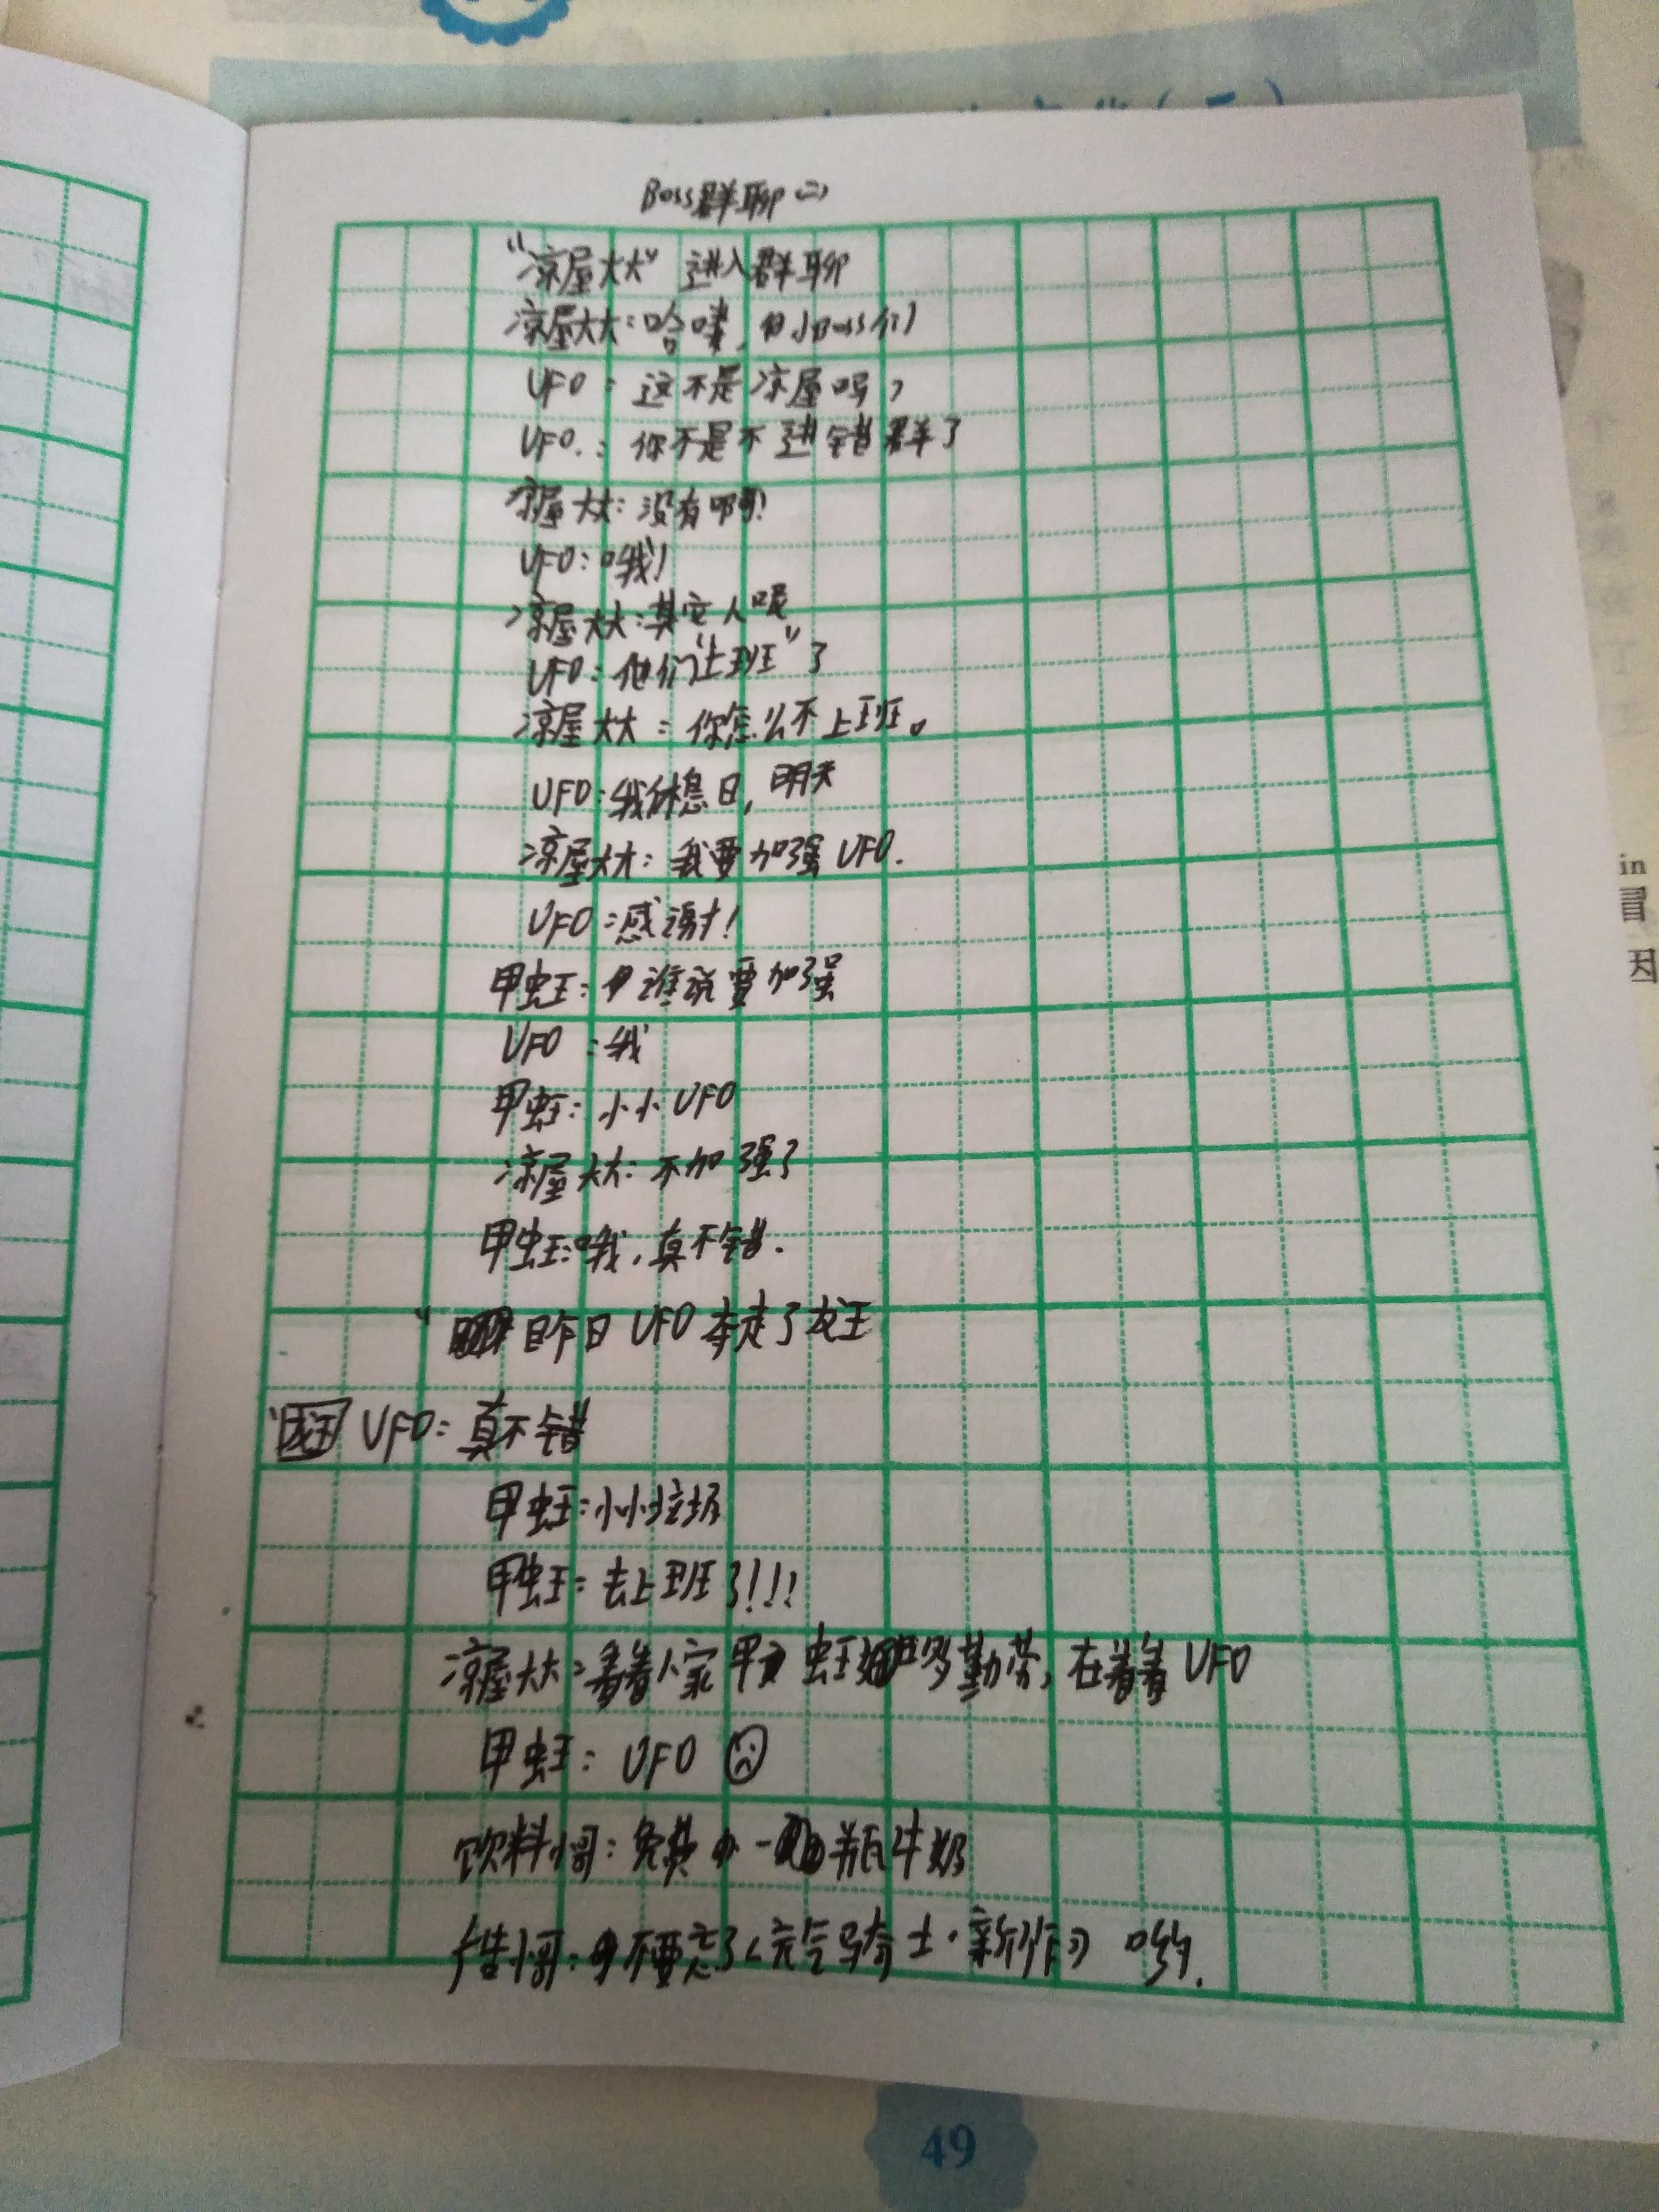 Boss群聊(二)
"凉屋大大"进入群聊
凉屋大大:哈喽,小Boss们
UFO:这不是凉屋吗?
UFO.:你不是不进错群了
凉屋大大:没有啊!
UFO:哦!
凉屋大大:其它人呢
UFO:他们"上班"了
凉屋大大:你怎么不上班。
UFO:我休息日,明天
凉屋大大:我要加强UFO.
UFO:感谢!
甲虫王:谁说要加强
UFO:我
甲虫王:小小UFO
凉屋大大:不加强了
甲虫王:哦,真不错.
昨日UFO夺走了女王
UFO:真不错
甲虫王:小小垃圾
甲虫王:去上班了!!!
凉屋大大:看看人家甲虫王多勤劳,在看看UFO
甲虫王:UFO
饮料小哥:免费一瓶牛奶
广告小哥:不要忘了《元气骑士·新作》哟.
in
冒
因
49